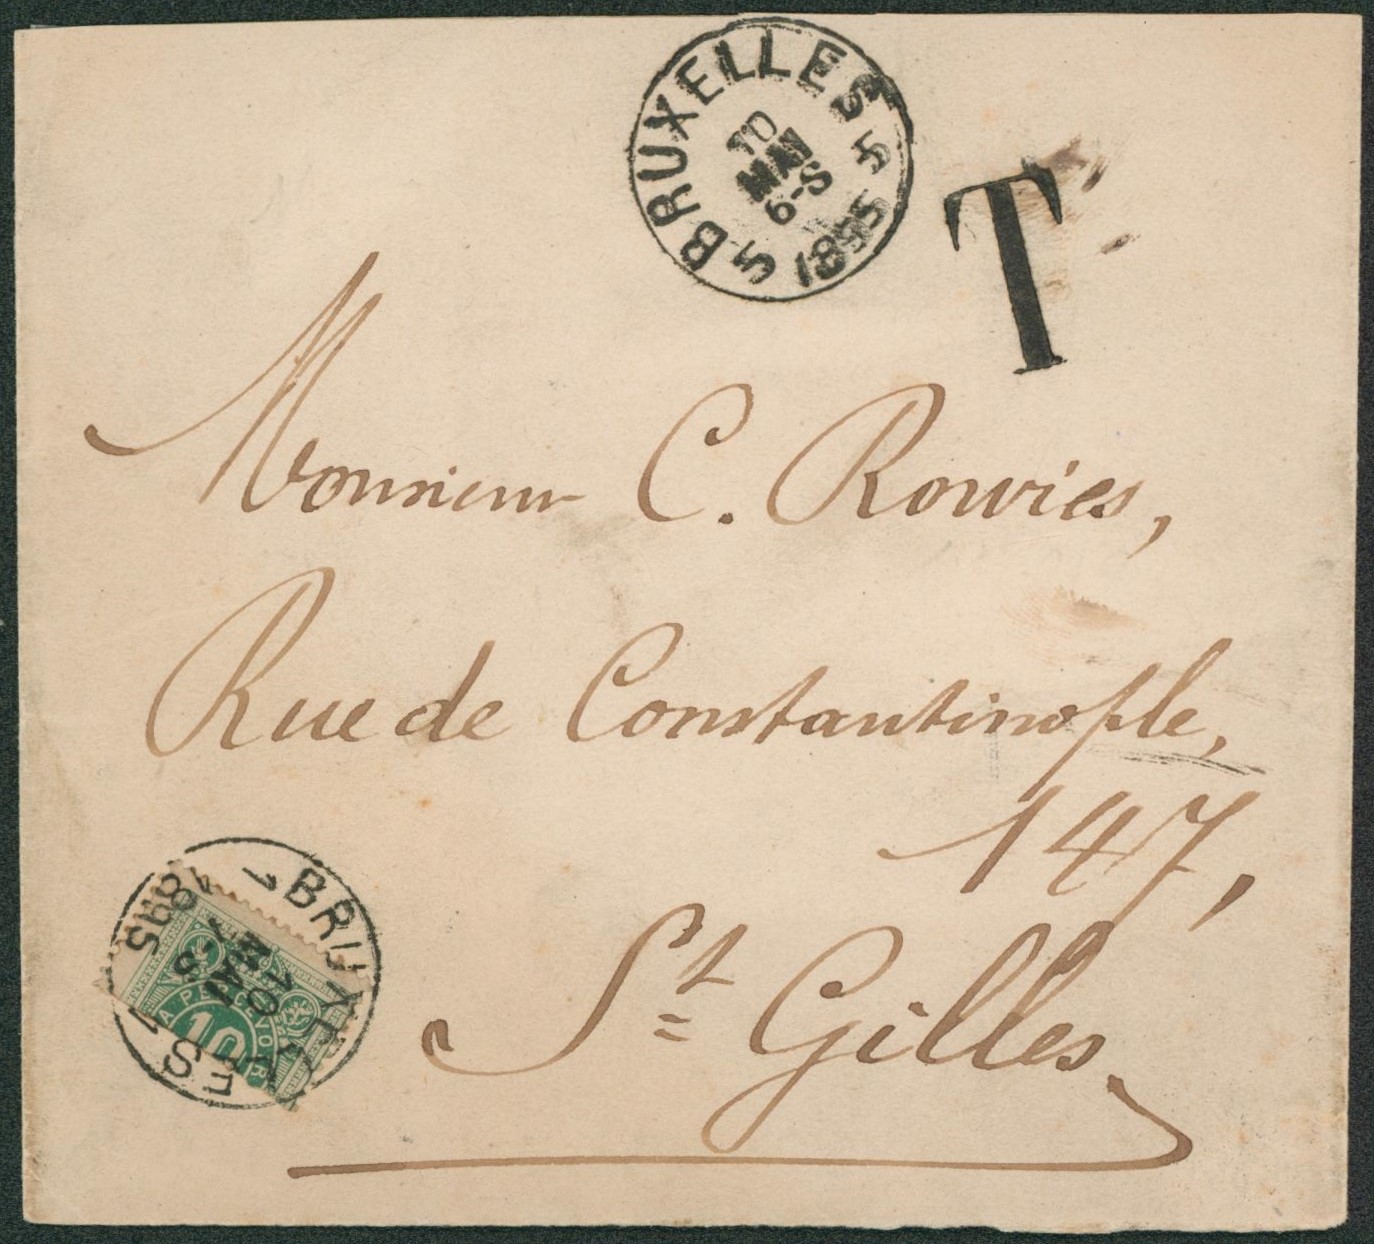 BRUXELLES 5
10
MAI
6-S
1895
5
T
Monsieur C. Rowies,
Rue de Constantinople,
147,
St Gilles
1 BRUXELLES 1
10
MAI
1895
A PERCEVOIR
10